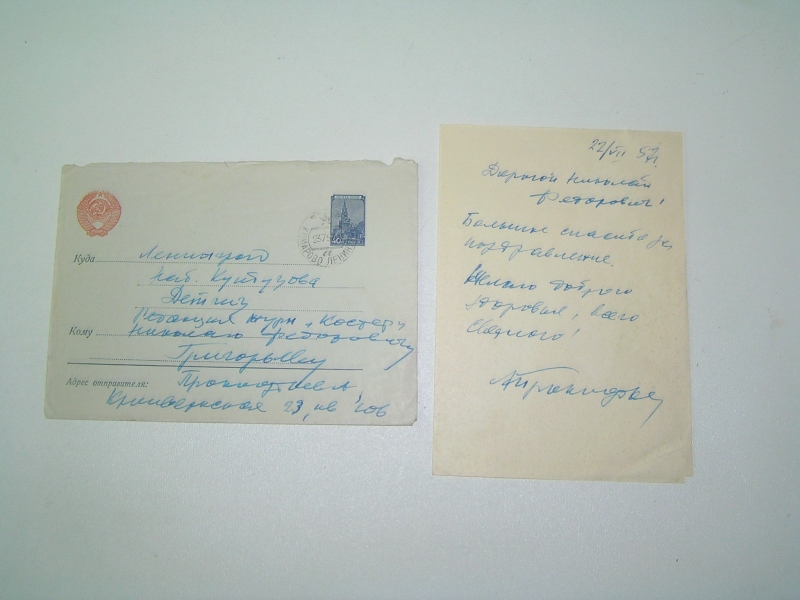 Куда Ленинград
Наб. Кутузова
Детгиз
Редакция журн „Костер"
Кому Николаю Федоровичу
Григорьеву
Адрес отправителя: Прокофьев,
Кронверкская 23, кв
КОМАРОВО ЛЕНИНГ
22/VII 57 г.
Дорогой Николай
Федорович!
Большое спасибо за
поздравление.
Желаю доброго
здоровья, всего
светлого!
АПрокофьев